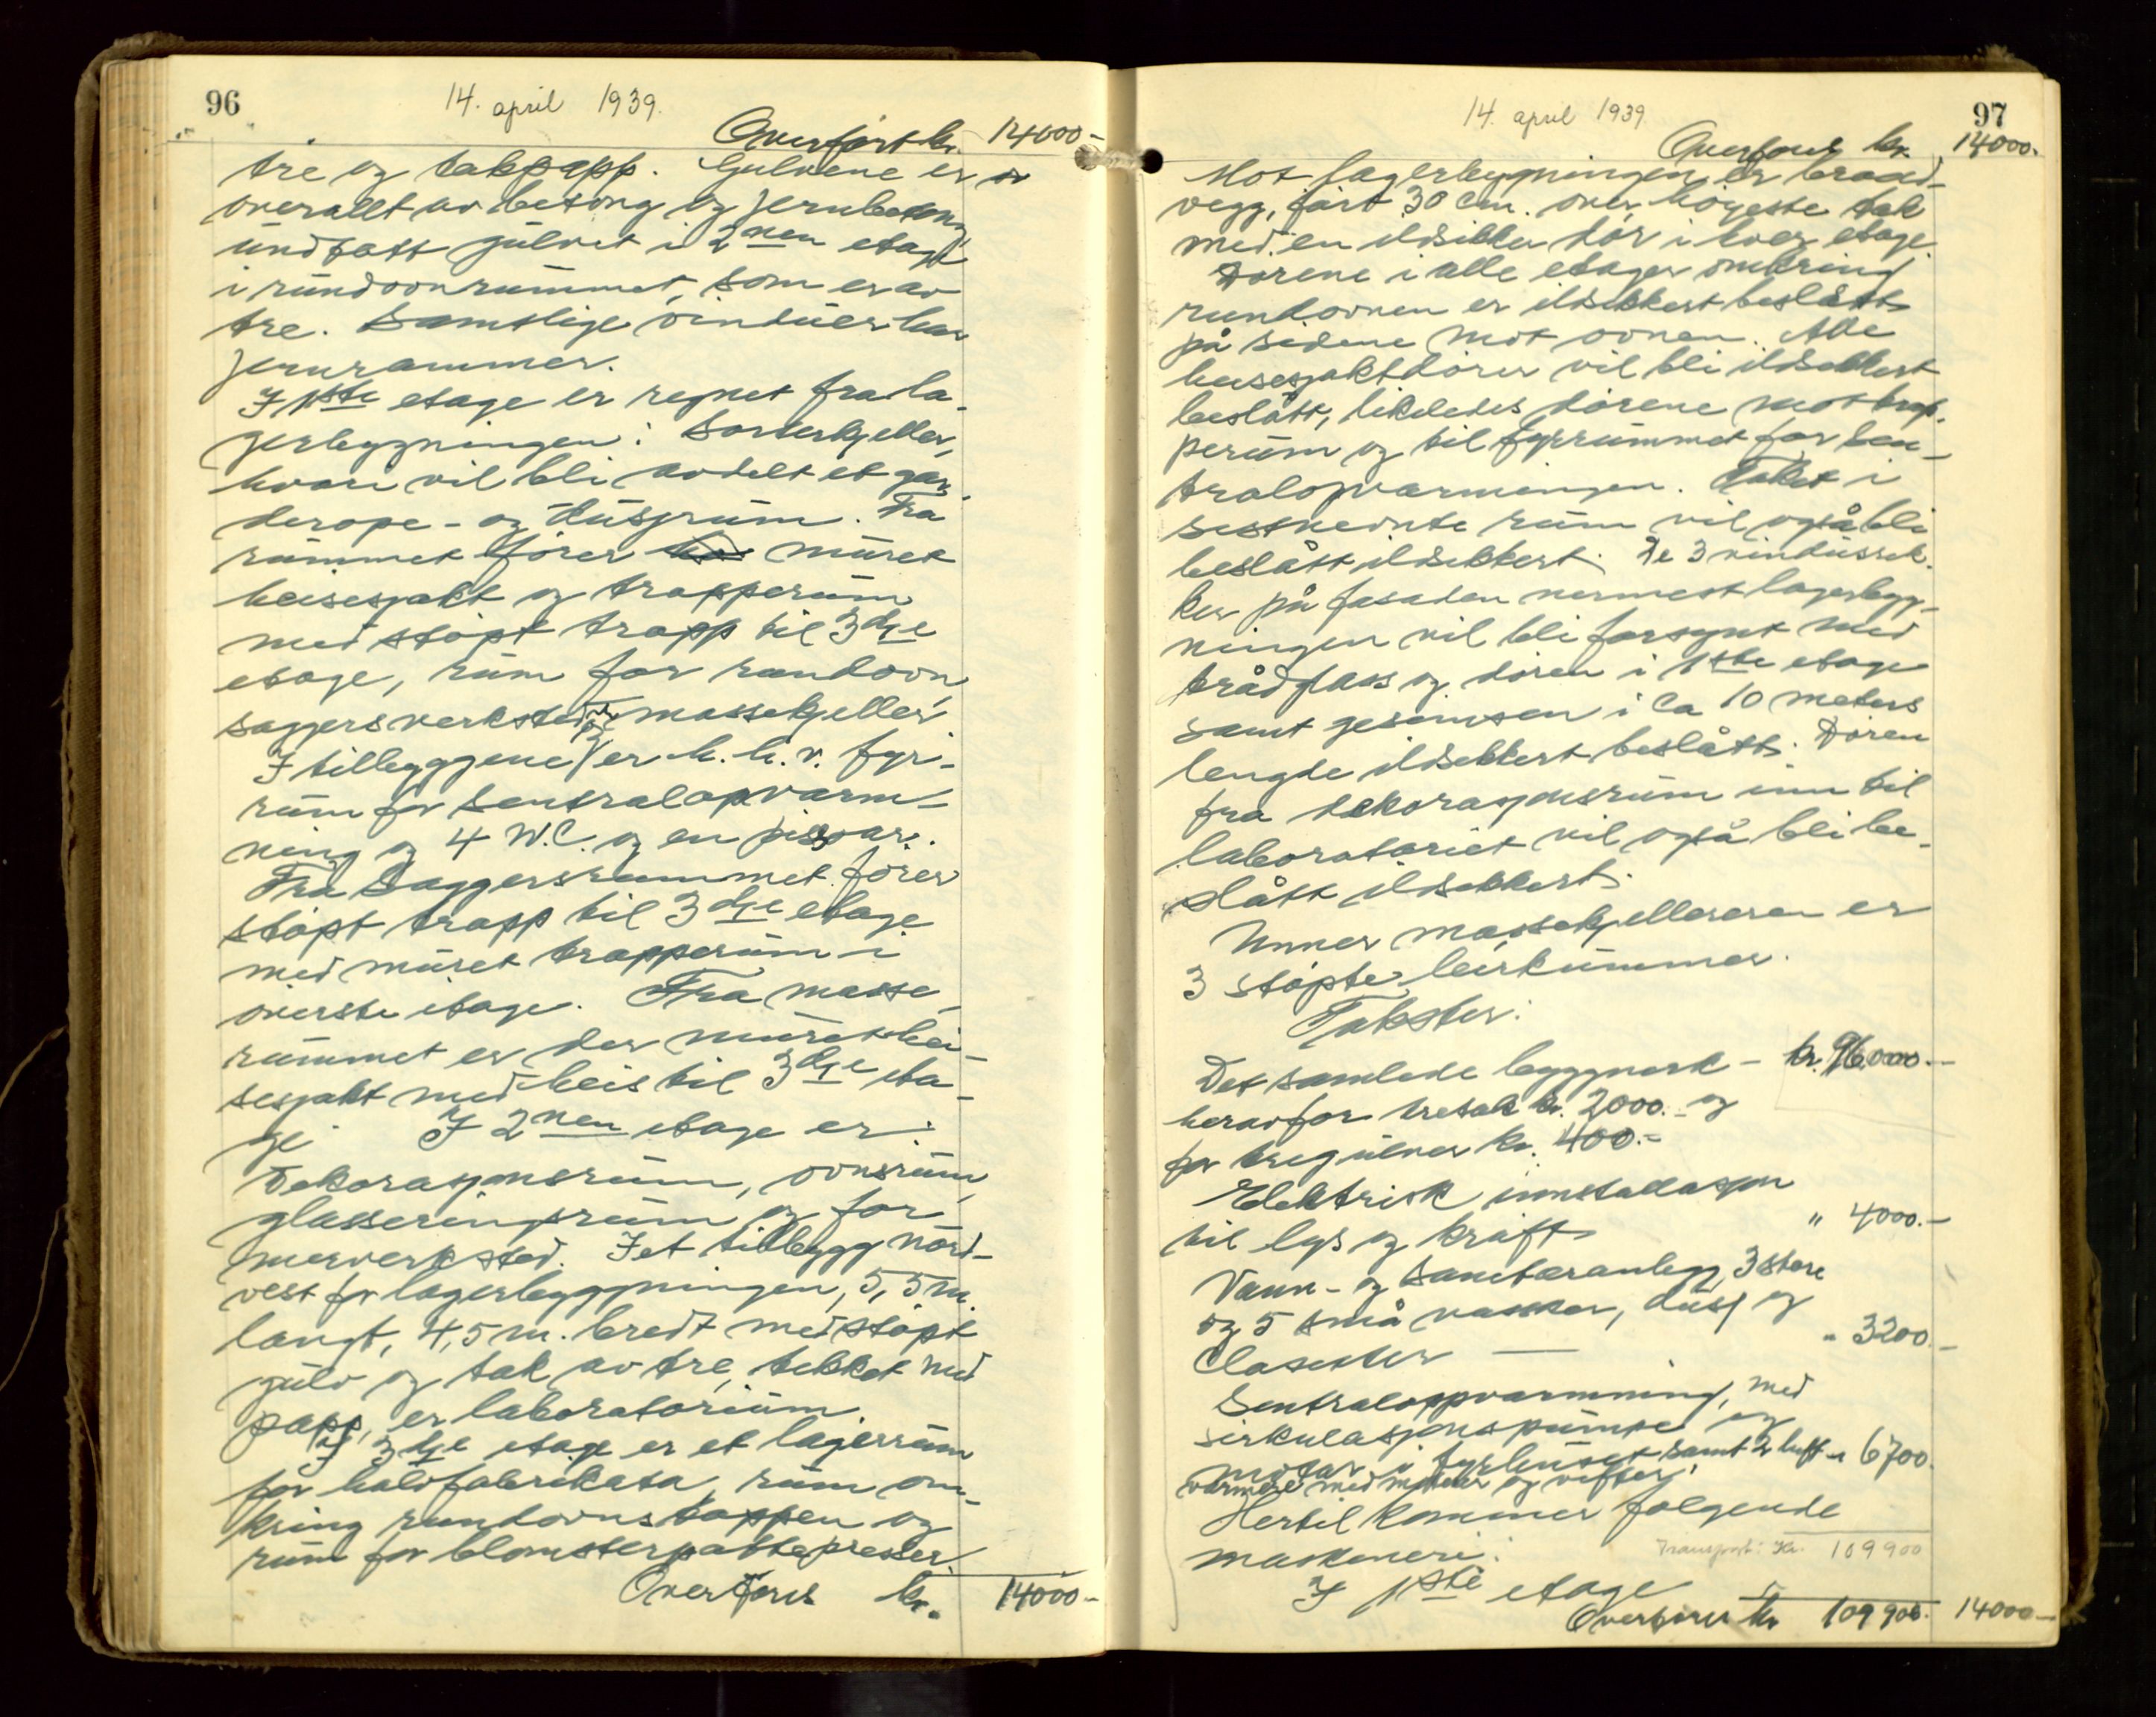 96
14. april 1939.
Overført kr. 14000-
tre og takpapp. Gulvene er
overallt av betong og jernbetong
undtatt gulvet i 2nen etage
i rundovnrummet, som er av
tre. Samtlige vinduer har
jernrammer.
I 1ste etage er regnet fra la-
gerbygningen: Sorterkjeller,
hvori vil bli avdelt et gar-
derope- og dusjrum. Fra
rummet fører muret
heisesjakt og trapperum
med støpt trapp til 3dje
etage, rum for rundovn,
saggersverksted og massekjeller.
I tilbyggene er h.h.v. fyr-
rum for sentralopvarm-
ning og 4 W.C. og en pissoar.
Fra Saggersrummet fører
støpt trapp til 3dje etage
med muret trapperum i
øverste etage. Fra masse-
rummet er der muret hei-
sesjakt med heis til 3dje eta-
ge I 2nen etage er:
Dekorasjonsrum, ovnsrum,
glasseringsrum og for-
merverksted. I et tilbygg nord-
vest for lagerbyggningen, 5,5 m.
langt, 4,5 m. bredt med støpt
gulv og tak av tre, tekket med
papp, er laboratorium.
I 3dje etage er et lagerrum
for halvfabrikata, rum om-
kring rundovnstoppen og
rum for blomsterpottepresser.
Overføres kr. 14000-
97
14. april 1939
Overført kr. 14000.
Mot lagerbygningen er brand-
vegg, ført 30 cm. over høyeste tak
med en ildsikker dør i hver etage.
Dørene i alle etager omkring
rundovnen er ildsikkert beslått
på sidene mot ovnen. Alle
heisesjaktdører vil bli ildsikkert
beslått, likeledes dørene mot trap-
perum og til fyrrummet for sen-
tralopvarmingen. Taket i
sistnevnte rum vil også bli
beslått ildsikkert. De 3 vindusrek-
ker på fasaden nermest lagerbygg-
ningen vil bli forsynt med
trådglass og døren i 1ste etage
samt gesimsen i ca 10 meters
lengde ildsikkert beslått. Døren
fra dekorasjonsrum inn til
laboratoriet vil også bli be-
slått ildsikkert.
Unner massekjelleren er
3 støpte leirkummer.
Takster:
Det samlede byggverk - kr. 96000.-
herav for tretak kr. 2000.- og
for tregulver kr. 400.-
Elektrisk innstallasjon
til lys og kraft " 4000.-
Vann- og sanitæranlegg, 3 store
og 5 små vasker, dusj og
Closetter " 3200.-
Sentraloppvarmning, med
sirkulasjonspumpe og
motor i fyrhuset samt 2 luft- " 6700.
varmere med motorer og vifter.
Hertil kommer følgende
maskineri: Transport: Kr. 109900
I 1ste etage
Overføres kr 109900. 14000-